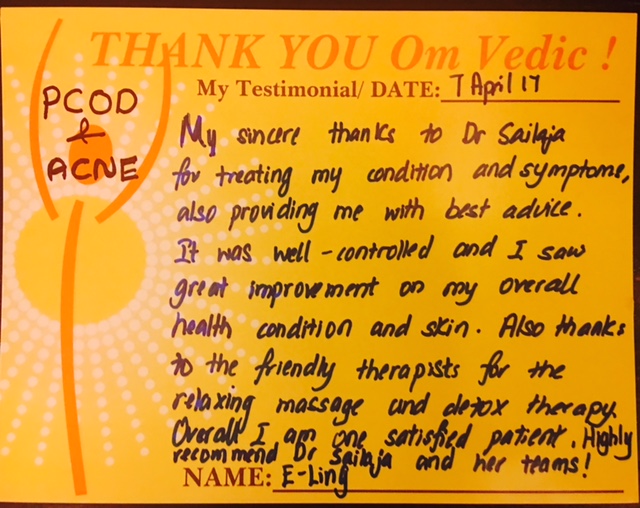 THANK YOU Om Vedic !
My Testimonial/ DATE: 7 April 17
PCOD
&
ACNE
My sincere thanks to Dr Sailaja
for treating my condition and symptoms,
also providing me with best advice.
It was well-controlled and I saw
great improvement on my overall
health condition and skin. Also thanks
to the friendly therapists for the
relaxing massage and detox therapy.
Overall I am one satisfied patient. Highly
recommend Dr Sailaja and her teams!
NAME: E-Ling